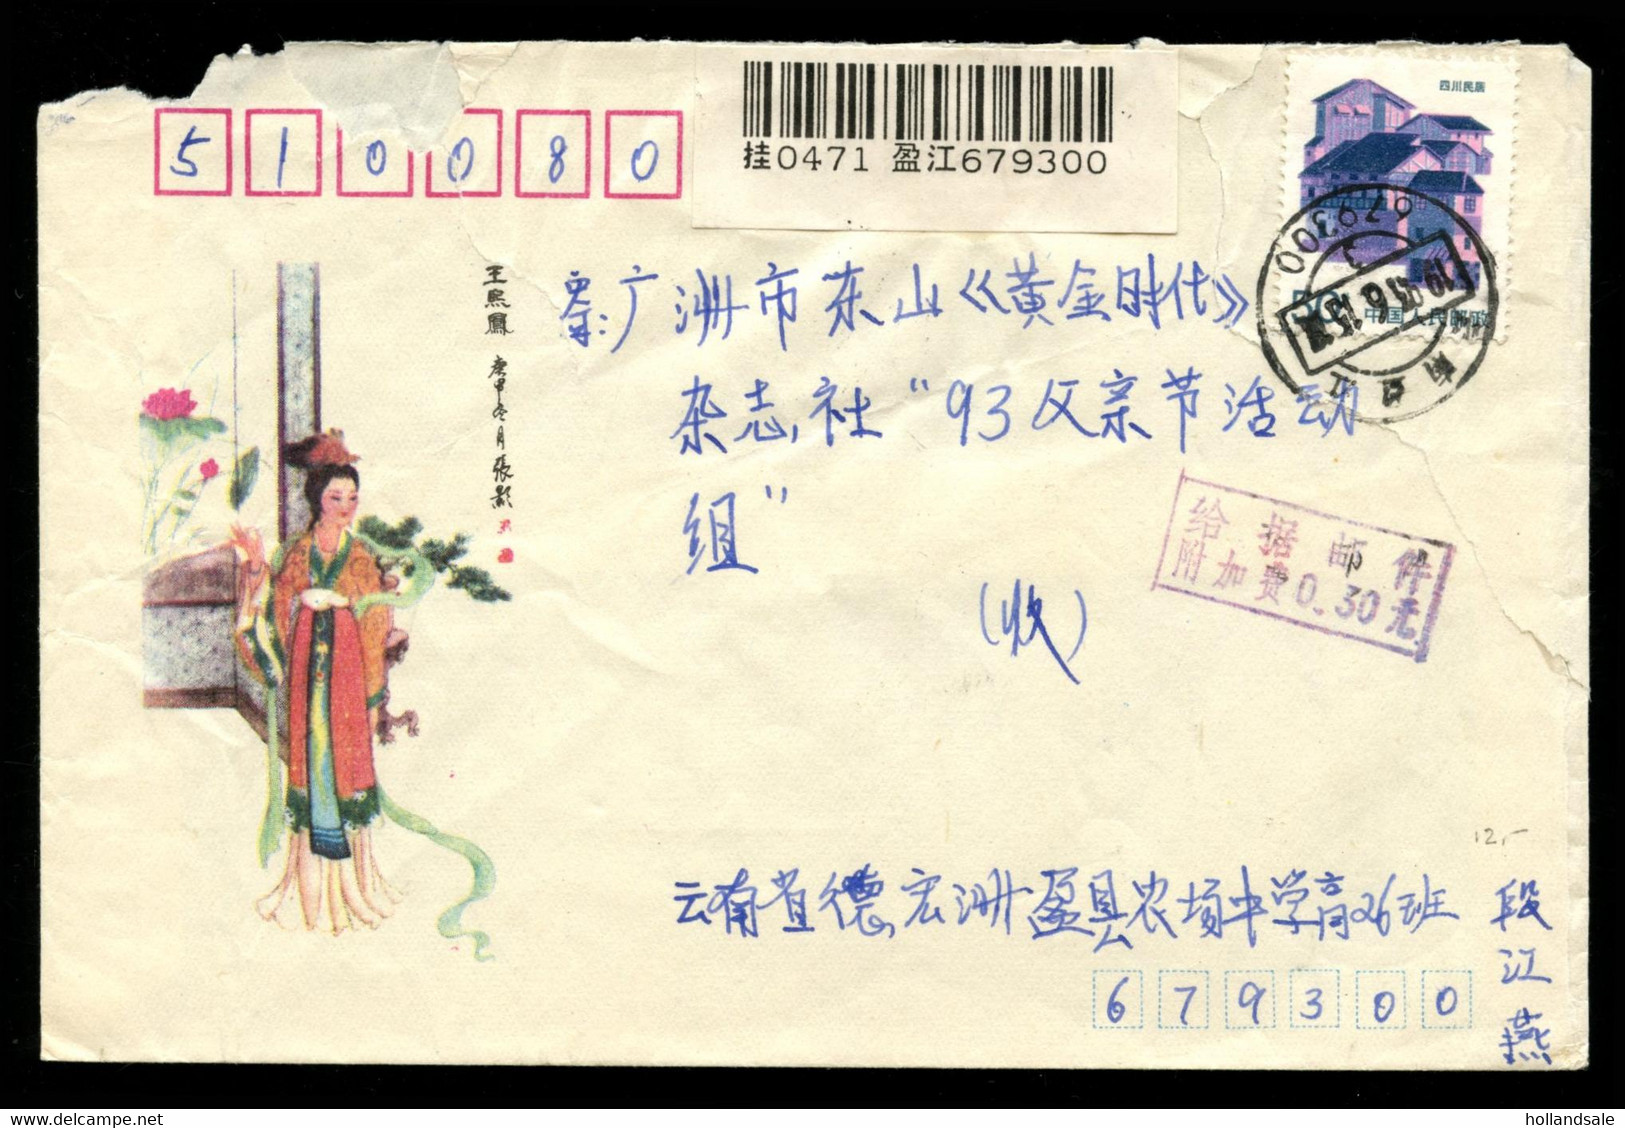 510080
挂0471 盈江679300
四川民居
中国人民邮政
679300
王熙鳳
庚申冬月張影
广洲市东山《黄金时代》
杂志社“93父亲节活动
组”
(收)
给据邮件
附加费0.30元
12,-
云南省德宏洲盈江县农场中学高26班
段江燕
679300
hollandsale